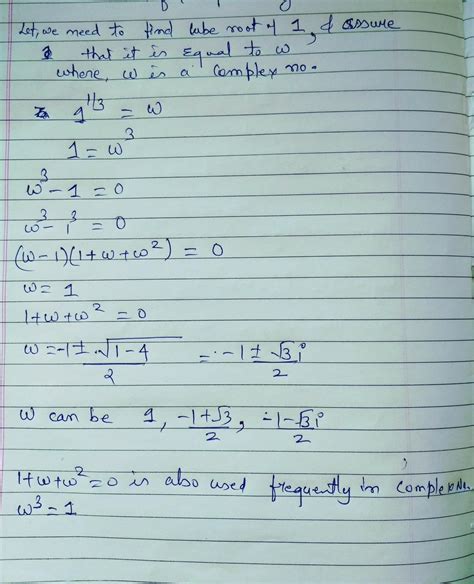 Let, we need to find cube root of 1, & assure
that it is equal to ω
where, ω is a complex no.
1^{1/3} = ω
1 = ω^3
ω^3 - 1 = 0
ω^3 - 1^3 = 0
(ω-1)(1+ω+ω^2) = 0
ω = 1
1+ω+ω^2 = 0
ω = -1 ± √(1-4) / 2 = -1 ± √3 i / 2
ω can be 1, -1+√3 / 2, -1-√3i / 2
1+ω+ω^2=0 is also used frequently in complex No.
ω^3 = 1